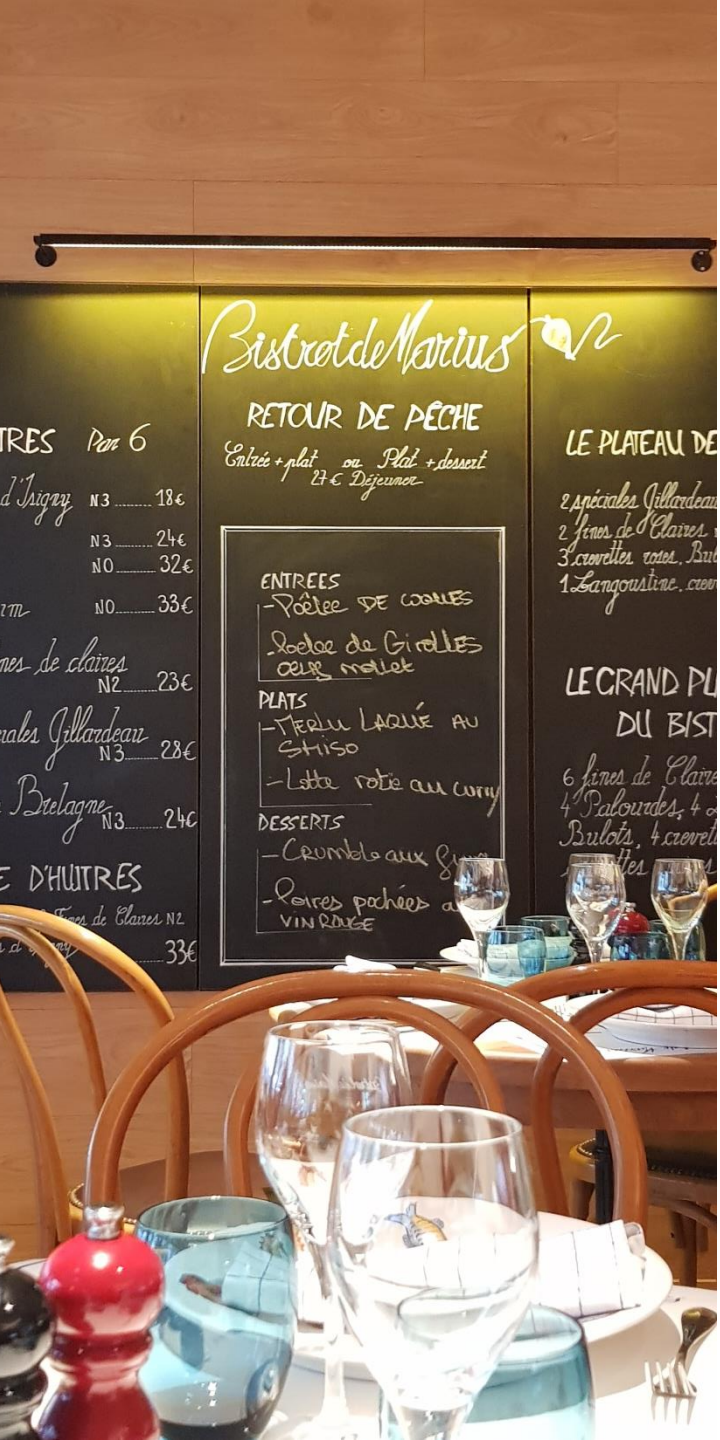 TRES Par 6
d'Isigny N3 ........ 18€
N3 ........ 24€
N0 ........ 32€
N0 ........ 33€
nes de claires
N2 ........ 23€
iales Gillardeau
N3 ........ 28€
Bretagne
N3 ........ 24€
E D'HUITRES
Fines de Claires N2
33€
Bistrot de Marius
RETOUR DE PÊCHE
Entrée + plat ou Plat + dessert
27€ Déjeuner
ENTREES
- Poêlée DE COQUES
- Poelee de Girolles
oeuf mollet
PLATS
- MERLU LAQUÉ AU
SHISO
- Lotte rotie au curry
DESSERTS
- Crumble aux
- Poires pochées a
VIN ROUGE
LE PLATEAU DE
2 spéciales Gillardeau
2 fines de Claires
3 crevettes roses, Bul
1 Langoustine, crev
LE GRAND PL
DU BIST
6 fines de Claire
4 Palourdes, 4
Bulots, 4 crevet
ttes